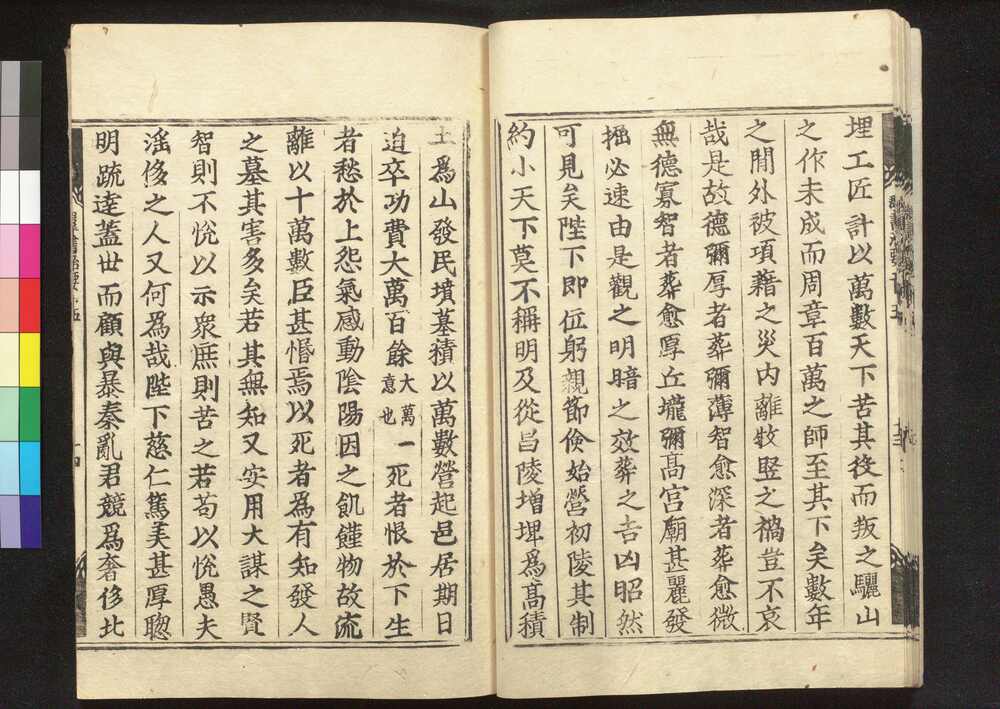 埋工匠計以萬數天下苦其役而叛之驪山
之作未成而周章百萬之師至其下矣數年
之間外被項藉之災內離牧竪之禍豈不哀
哉是故德彌厚者葬彌薄智愈深者葬愈微
無德寡智者葬愈厚丘壠彌髙宮廟甚麗發
掘必速由是觀之明暗之效葬之吉凶昭然
可見矣陛下即位躬親節儉始營初陵其制
約小天下莫不稱明及從昌陵增埤爲髙積
土爲山發民墳墓積以萬數營起邑居期日
迫卒功費大萬百餘大萬一死者恨於下生
意也
者愁於上怨氣感動陰陽因之飢饉物故流
離以十萬數臣甚惽焉以死者爲有知發人
之墓其害多矣若其無知又安用大謀之賢
智則不恱以示衆庶則苦之若苟以恱愚夫
滛侈之人又何爲哉陛下慈仁篤美甚厚聰
明䟽逹蓋丗而顧與暴秦亂君競爲奢侈北
羣書治要十五
十四